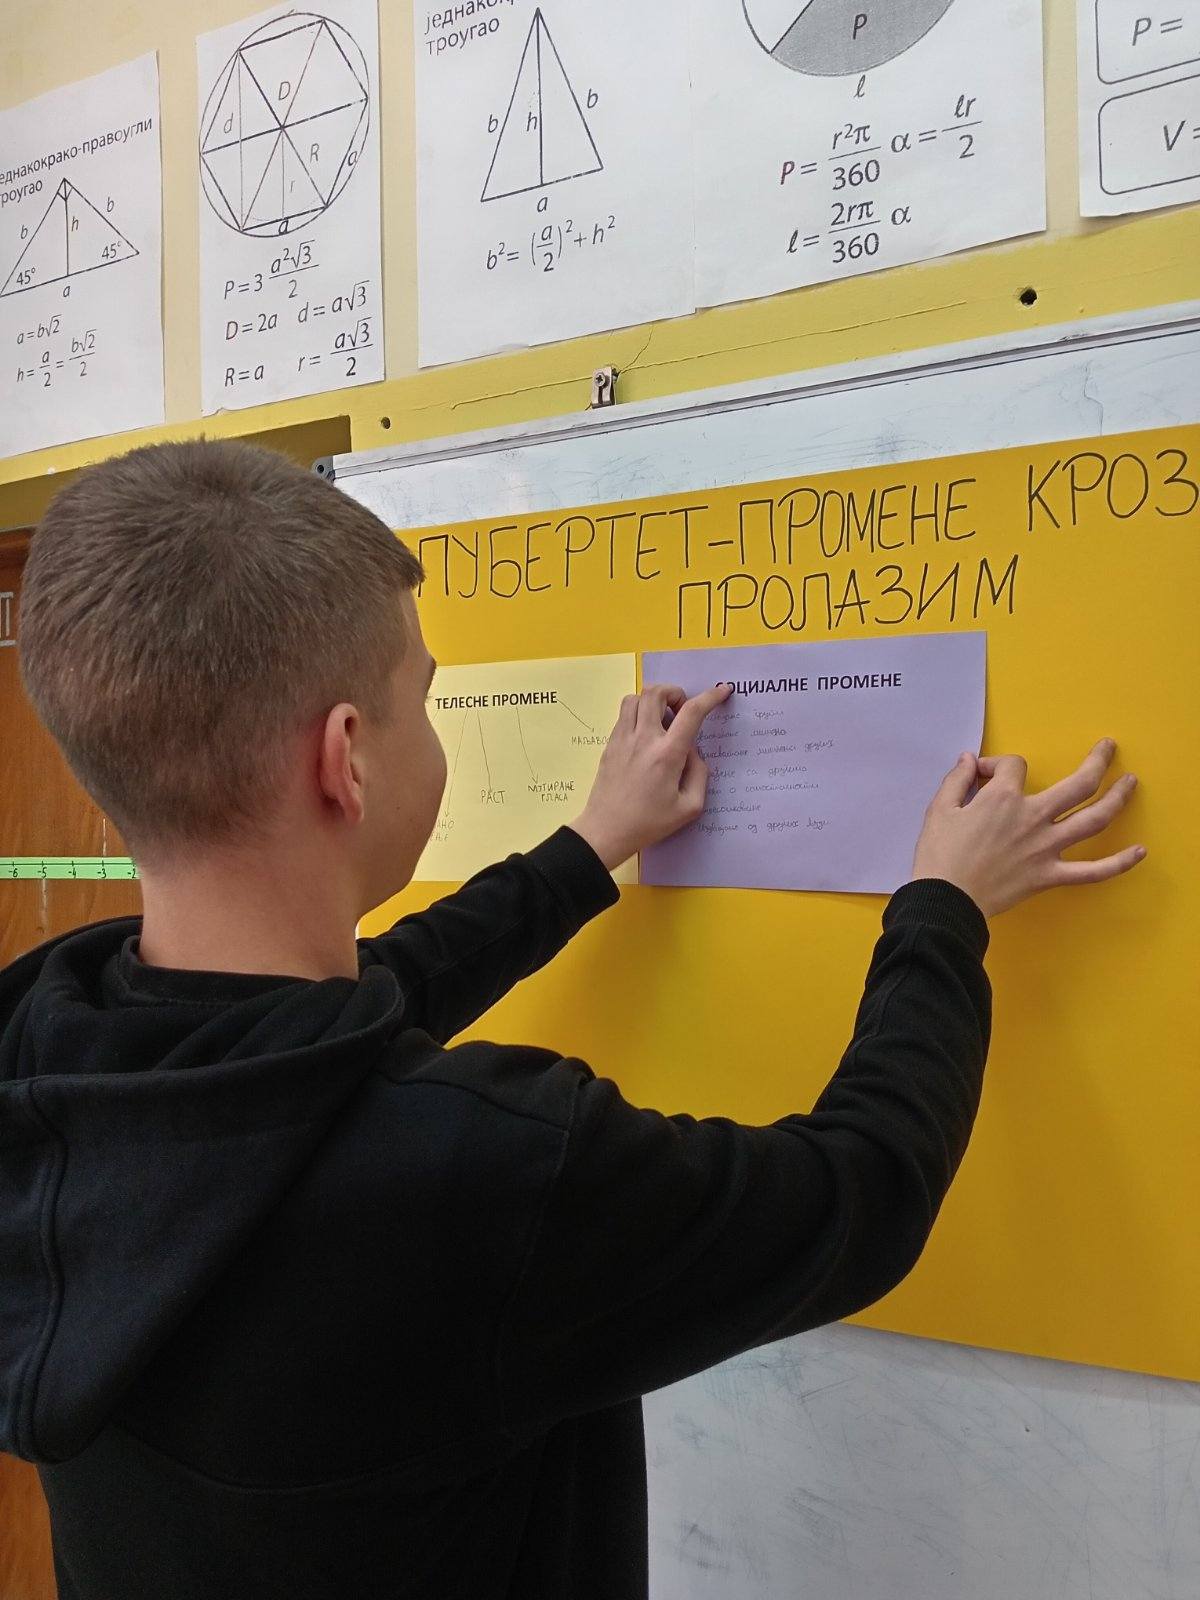 једнакокрако-правоугли
троугао
b
h
b
45°
45°
a
a=b√2
h= a/2 = b√2/2
D
d
R
r
a
a
P=3 a²√3/2
D=2a d=a√3
R=a r= a√3/2
троугао
b
h
b
a
b²= (a/2)²+h²
P
l
P= r²π/360 α = lr/2
l= 2rπ/360 α
P=
V=
ПУБЕРТЕТ-ПРОМЕНЕ КРОЗ
ПРОЛАЗИМ
ТЕЛЕСНЕ ПРОМЕНЕ
РАСТ
МУТИРАЊЕ
ГЛАСА
СОЦИЈАЛНЕ ПРОМЕНЕ
других
са
о самосталности
од других људи
-6 -5 -4 -3 -2